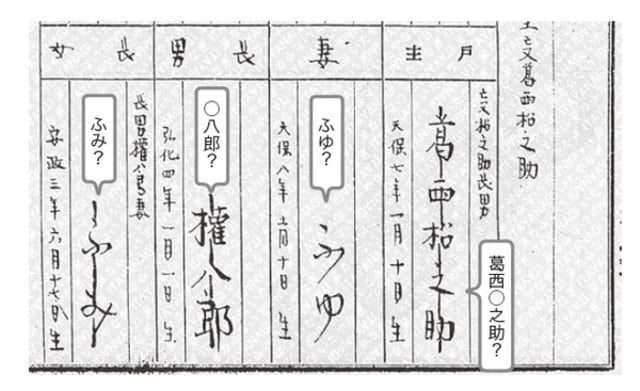 主亡父葛西松之助
戸主
亡父松之助長男
葛西松之助
葛西○之助？
天保七年一月十日生
妻
ふゆ
ふゆ？
天保八年二月十日生
長男
權八郎
○八郎？
弘化四年一月一日生
長男權八郎妻
長女
ふみ
ふみ？
安政三年六月十七日生